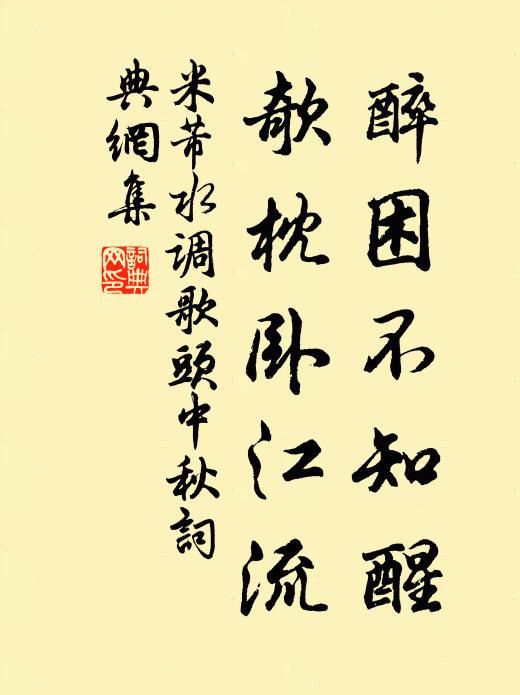 醉困不知醒
欹枕卧江流
米芾水调歌頭中秋詞
典網集
詞典网印